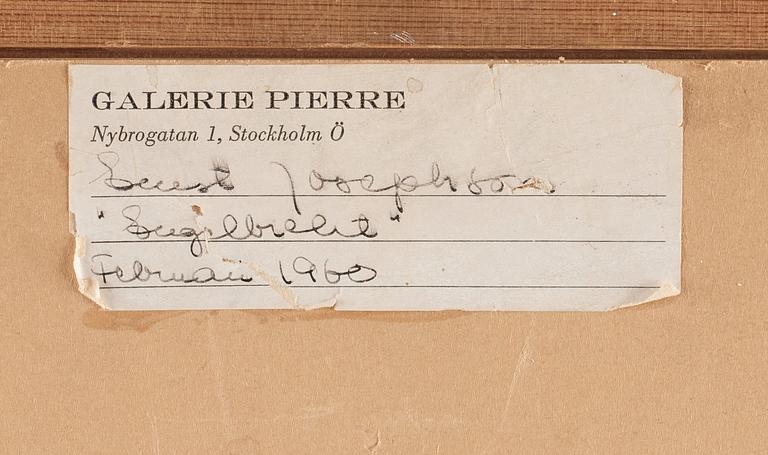 GALERIE PIERRE
Nybrogatan 1, Stockholm Ö
Ernst Josephson
"Engelbrecht"
Februari 1960